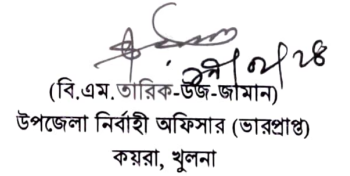 (বি.এম. তারিক-উজ-জামান)
উপজেলা নির্বাহী অফিসার (ভারপ্রাপ্ত)
কয়রা, খুলনা